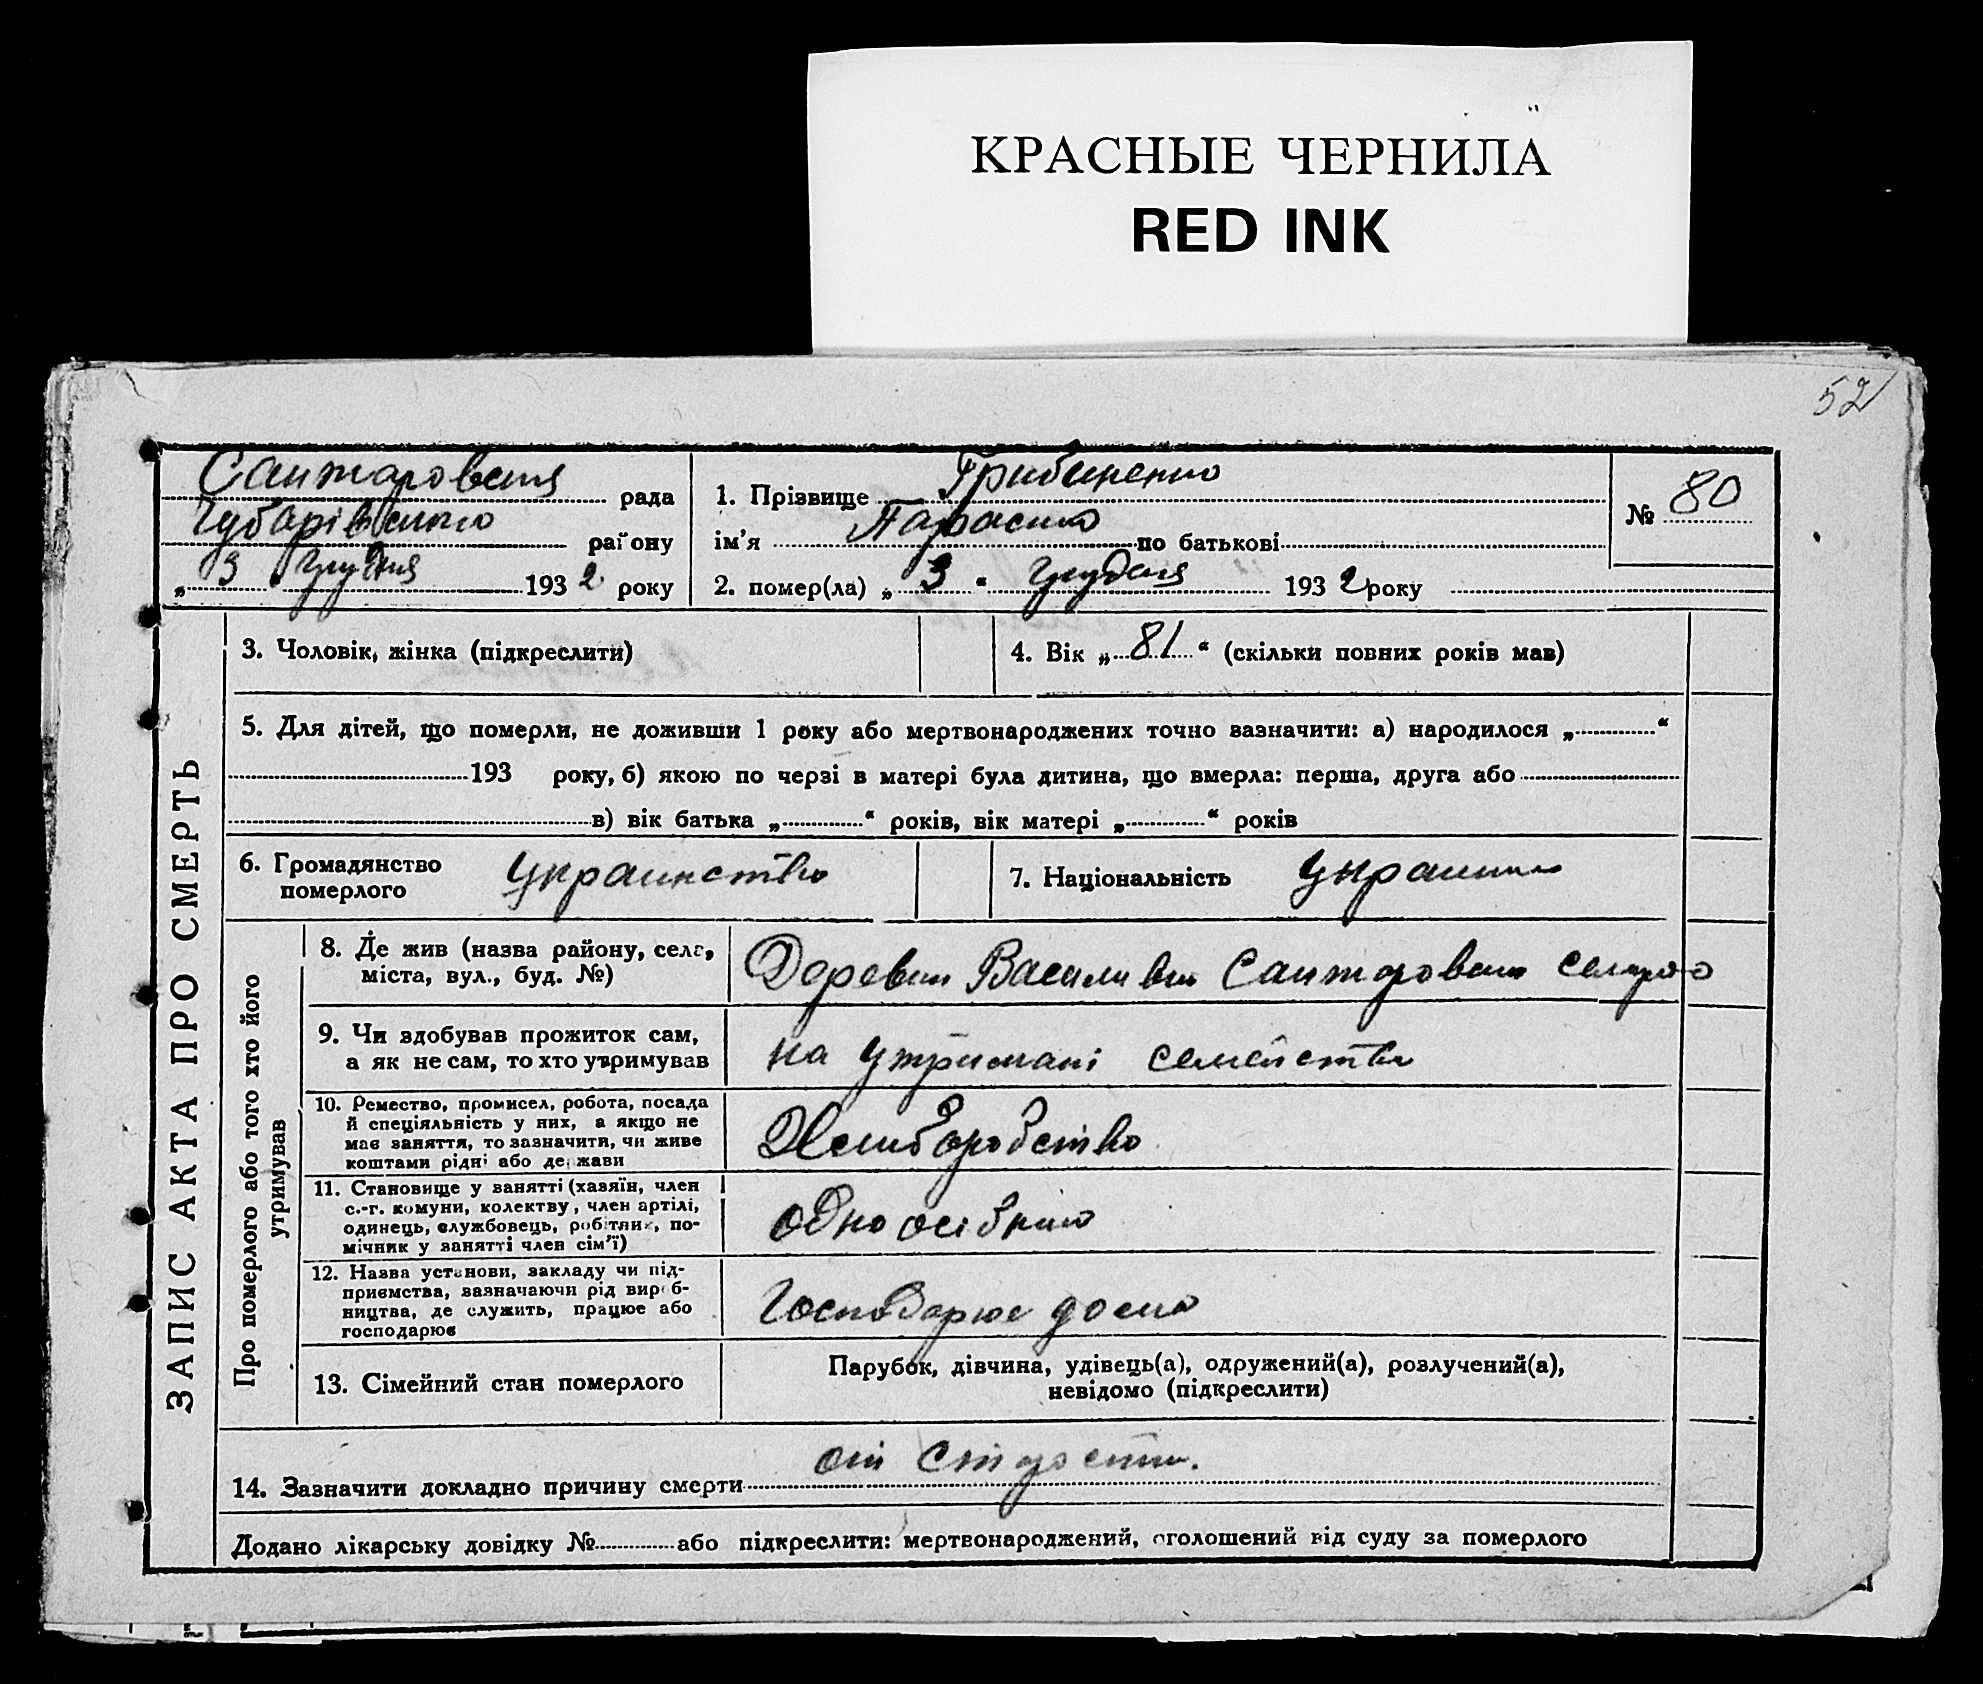 КРАСНЫЕ ЧЕРНИЛА
RED INK
52
Санжаровская рада
Чубарівського району
„3" Грудня 1932 року
1. Прізвище Грибиненко
ім'я Параска по батькові
2. помер(ла) „3" Грудня 1932 року
№ 80
ЗАПИС АКТА ПРО СМЕРТЬ
3. Чоловік, жінка (підкреслити)
4. Вік „81" (скільки повних років мав)
5. Для дітей, що померли, не доживши 1 року або мертвонароджених точно зазначити: а) народилося „ "
193 року, б) якою по черзі в матері була дитина, що вмерла: перша, друга або
в) вік батька „ " років, вік матері „ " років
6. Громадянство
померлого
украинство
7. Національність
Про померлого або того хто його
утримував
8. Де жив (назва району, села,
міста, вул., буд. №)
Деревни Василивки Санжаровской
9. Чи здобував прожиток сам,
а як не сам, то хто утримував
на утримані семейства
10. Ремество, промисел, робота, посада
й спеціяльність у них, а якщо не
має заняття, то зазначити, чи живе
коштами рідні або держави
Хлиборобство
11. Становище у занятті (хазяїн, член
с.-г. комуни, колективу, член артілі,
одинець, службовець, робітник, по-
мічник у занятті член сім'ї)
12. Назва установи, закладу чи під-
приємства, зазначаючи рід вироб-
ництва, де служить, працює або
господарює
Господарює дома
13. Сімейний стан померлого
Парубок, дівчина, удівець(а), одружений(а), розлучений(а),
невідомо (підкреслити)
14. Зазначити докладно причину смерти от старости.
Додано лікарську довідку № або підкреслити: мертвонароджений, оголошений від суду за померлого